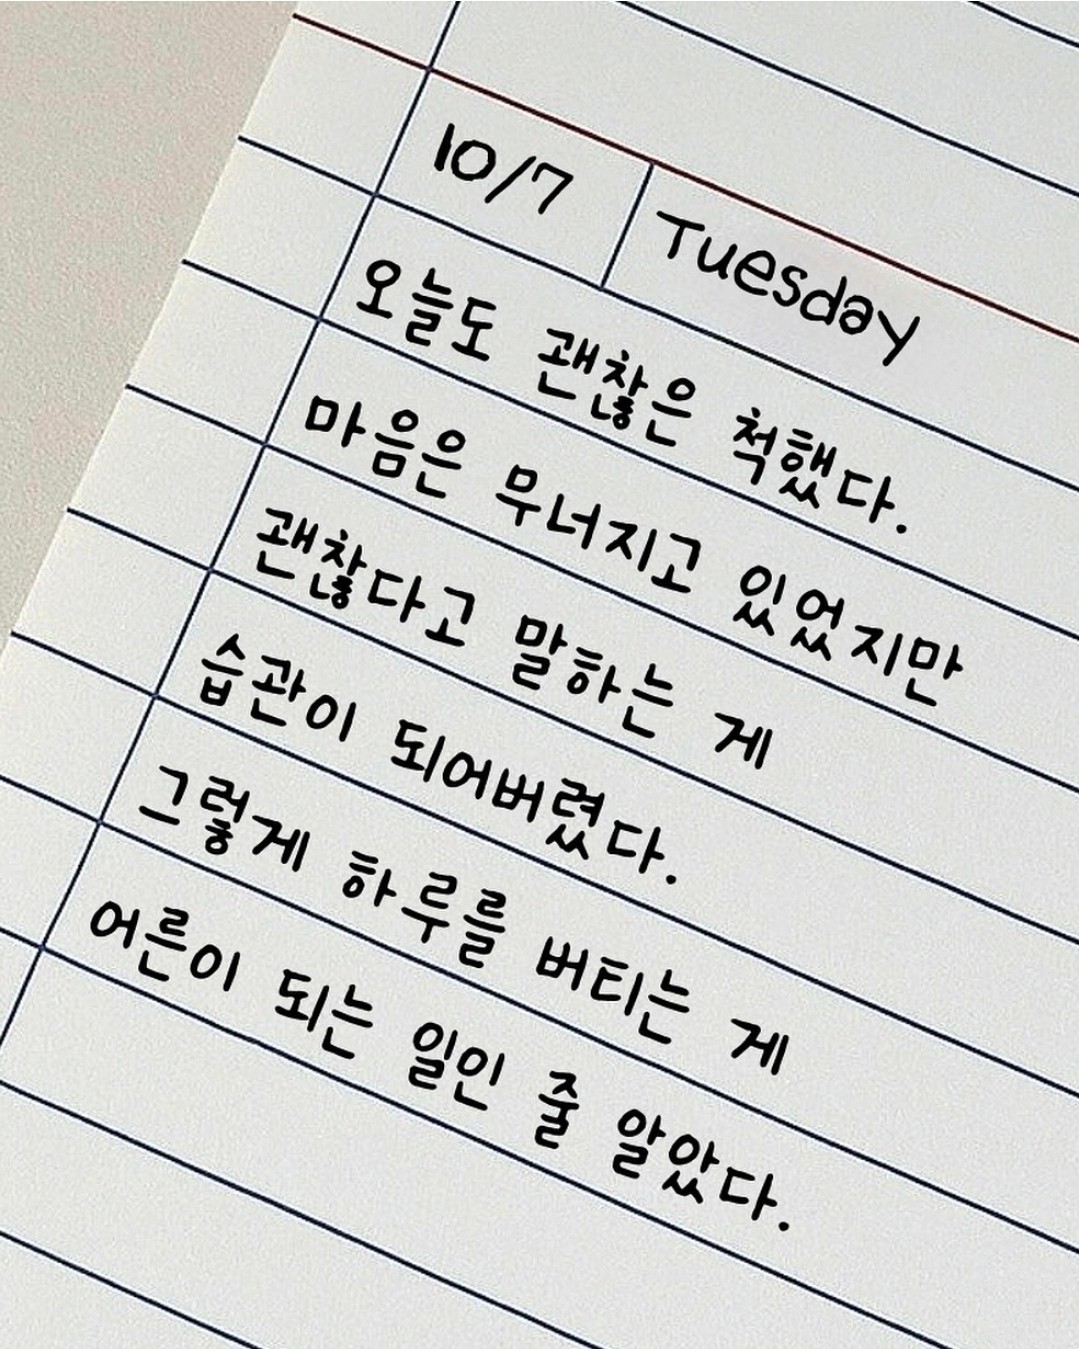 10/7 Tuesday
오늘도 괜찮은 척했다.
마음은 무너지고 있었지만
괜찮다고 말하는 게
습관이 되어버렸다.
그렇게 하루를 버티는 게
어른이 되는 일인 줄 알았다.